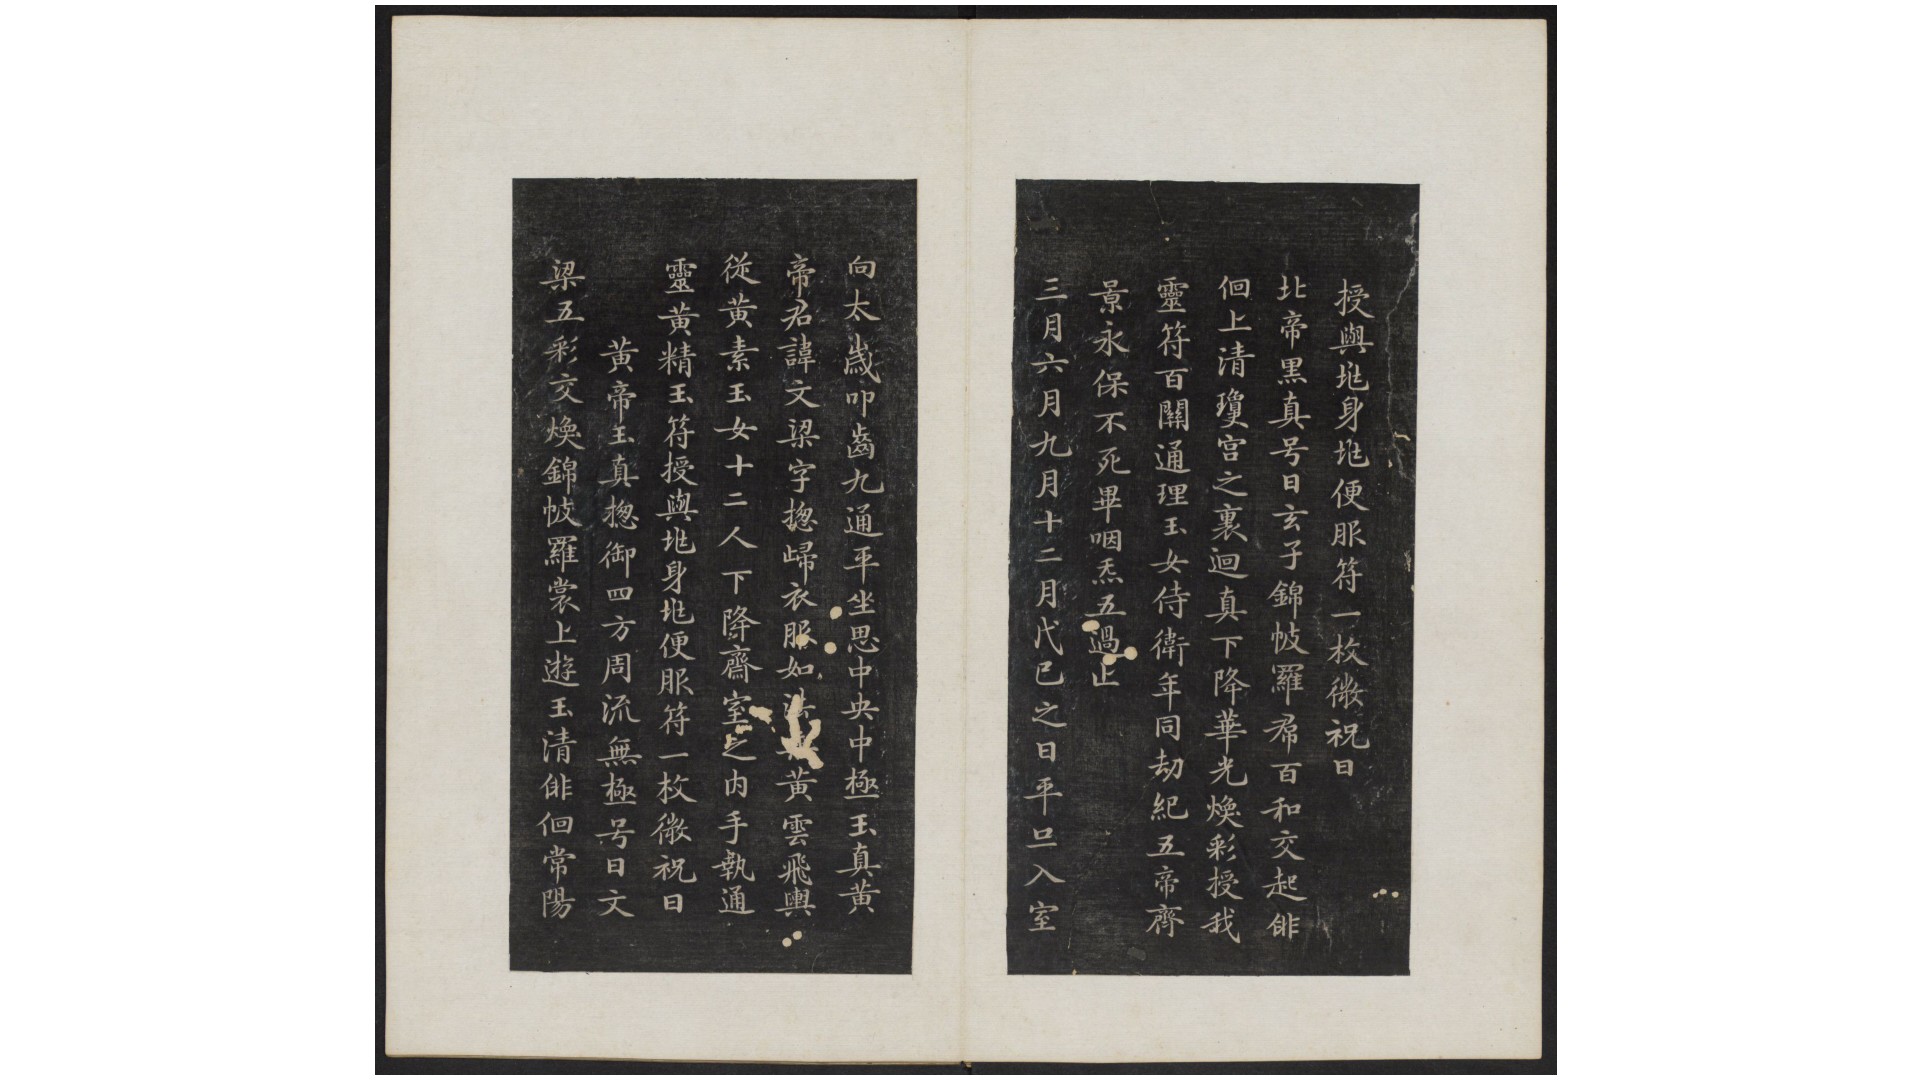 授與兆身兆便服符一枚微祝曰
北帝黑真号曰玄子錦帔羅帬百和交起俳
佪上清瓊宮之裏迴真下降華光煥彩授我
靈符百關通理玉女侍衛年同劫紀五帝齊
景永保不死畢咽炁五過止
三月六月九月十二月戊巳之日平旦入室
向太歲叩齒九通平坐思中央中極玉真黄
帝君諱文梁字揔歸衣服如法黄雲飛輿
從黄素玉女十二人下降齋室之內手執通
靈黄精玉符授與兆身兆便服符一枚微祝曰
黄帝玉真揔御四方周流無極号曰文
梁五彩交煥錦帔羅裳上遊玉清俳佪常陽